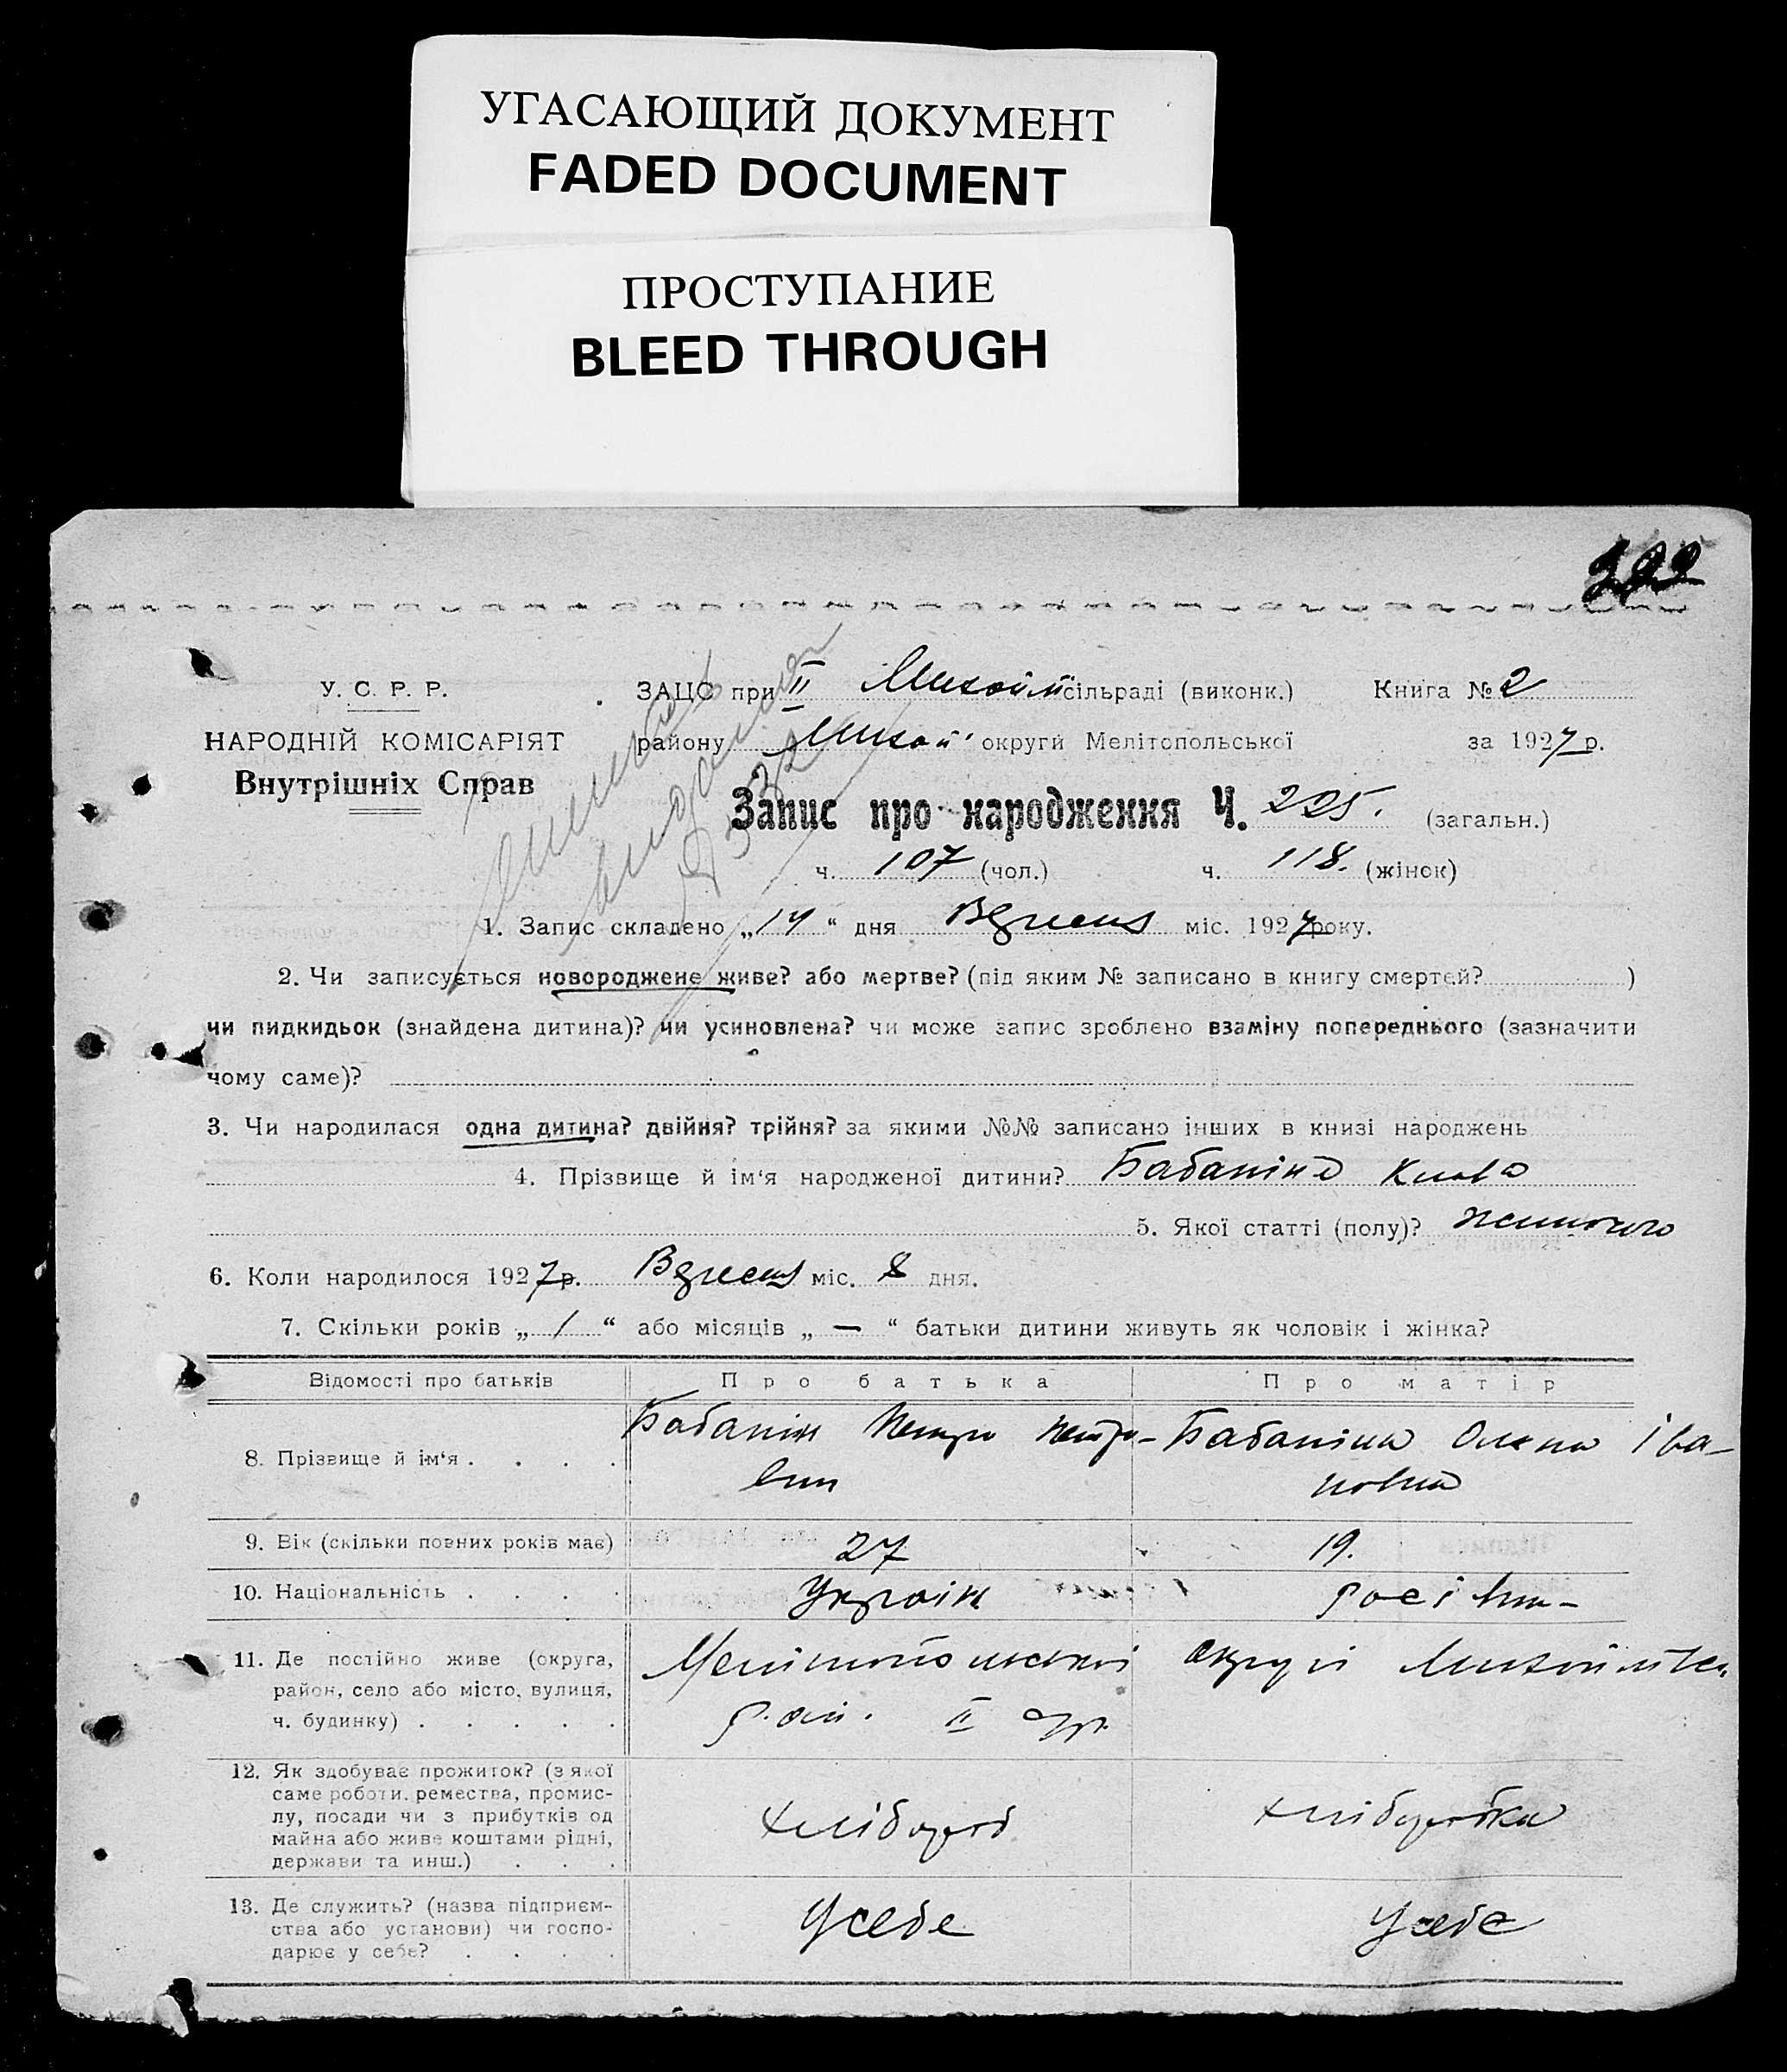 УГАСАЮЩИЙ ДОКУМЕНТ
FADED DOCUMENT
ПРОСТУПАНИЕ
BLEED THROUGH
У. С. Р. Р.
НАРОДНІЙ КОМІСАРІЯТ
Внутрішніх Справ
ЗАЦС при II сільраді (виконк.) Книга № 2
району округи Мелітопольської за 1927 р.
Запис про народження Ч. 225. (загальн.)
ч. 107 (чол.) ч. 118. (жінок)
1. Запис складено „14“ дня Вересня міс. 1927 року.
2. Чи записується новороджене живе? або мертве? (під яким № записано в книгу смертей? )
чи пидкидьок (знайдена дитина)? чи усиновлена? чи може запис зроблено взаміну попереднього (зазначити
чому саме)?
3. Чи народилася одна дитина? двійня? трійня? за якими №№ записано інших в книзі народжень
4. Прізвище й ім‘я народженої дитини? Бабаніна Клава
5. Якої статті (полу)? жиночого
6. Коли народилося 1927 р. Вересня міс. 8 дня.
7. Скільки років „ 1 “ або місяців „ — “ батьки дитини живуть як чоловік і жінка?
Відомості про батьків Про батька Про матір
8. Прізвище й ім‘я . . . . Бабанін Петро Петро- Бабаніна Олена Іва-
вич новна
9. Вік (скільки повних років має) 27 19.
10. Національність . . . . Україн росі
11. Де постійно живе (округа,
район, село або місто, вулиця,
ч. будинку) . . . . .
Мелітопольської округи
рай. II
12. Як здобуває прожиток? (з якої
саме роботи, ремества, промис-
лу, посади чи з прибутків од
майна або живе коштами рідні,
держави та инш.) . . .
хлібороб хліборобка
13. Де служить? (назва підприєм-
ства або установи) чи госпо-
дарює у себе? . . . .
У себе У себе